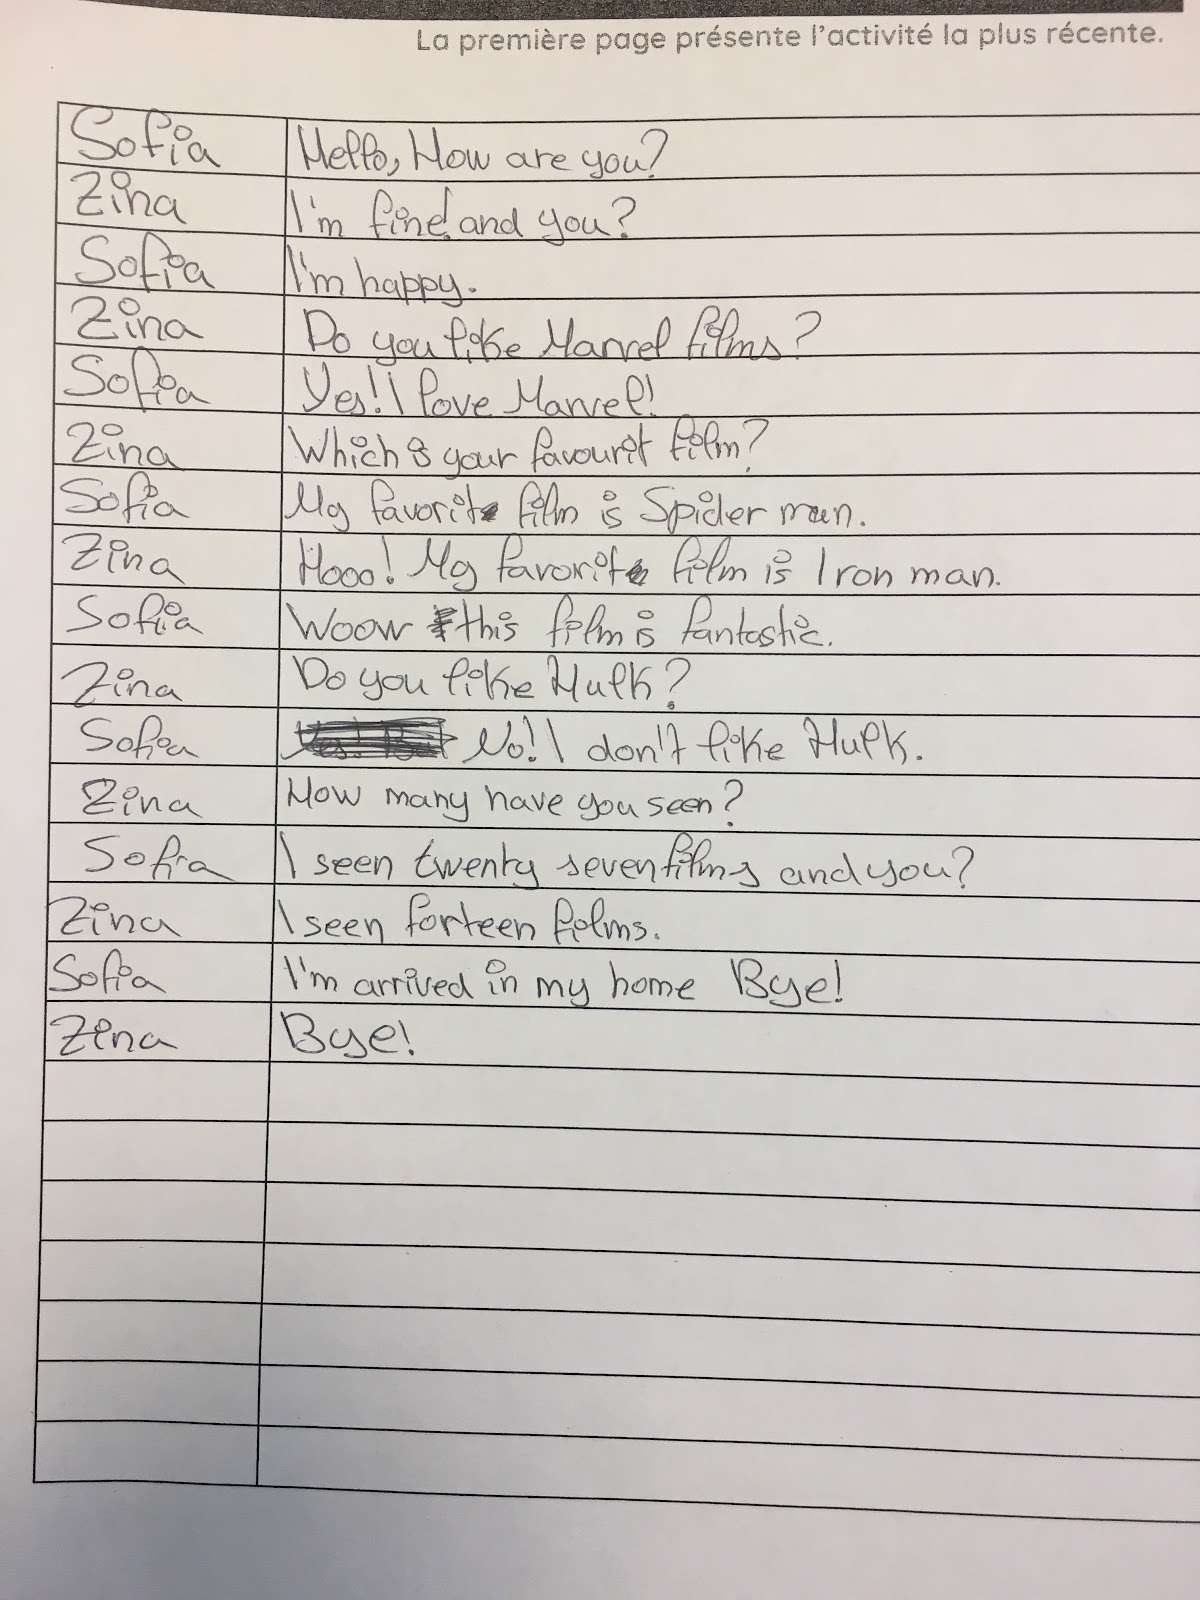 La première page présente l'activité la plus récente.
Sofia Hello, How are you?
Zina I'm fine! and you?
Sofia I'm happy.
Zina Do you like Marvel films?
Sofia Yes! I love Marvel!
Zina Which is your favourit film?
Sofia My favorit film is Spider man.
Zina Hooo! My favorit film is Iron man.
Sofia Woow this film is fantastic.
Zina Do you like Hulk?
Sofia No! I don't like Hulk.
Zina How many have you seen?
Sofia I seen twenty seven films and you?
Zina I seen forteen films.
Sofia I'm arrived in my home Bye!
Zina Bye!